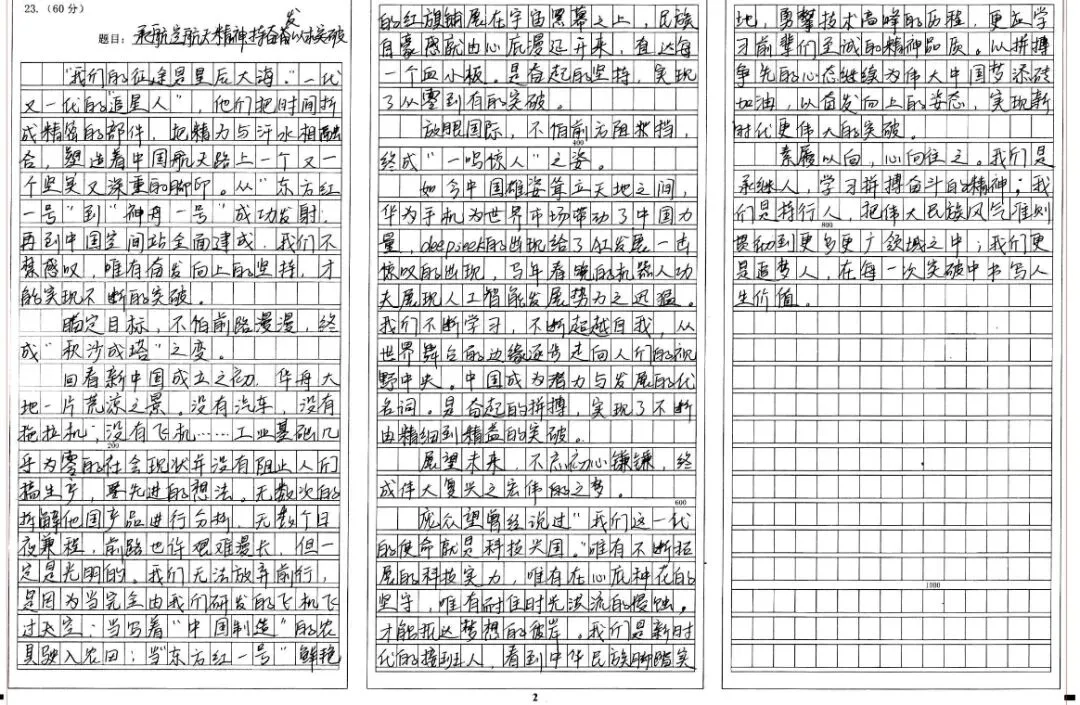 23.（60分）
发
题目：承航空航天精神持奋以求突破
“我们的征途是星辰大海。”一代
又一代的“追星人”，他们把时间拆
成精密的部件，把精力与汗水相融
合，塑造着中国航天路上一个又一
个坚实又深重的脚印。从“东方红
一号”到“神舟一号”成功发射，
再到中国空间站全面建成，我们不
禁感叹，唯有奋发向上的坚持，才
能实现不断的突破。
瞄定目标，不怕前路漫漫，终
成“积沙成塔”之变。
回看新中国成立之初，华舟大
地一片荒凉之景。没有汽车，没有
拖拉机，没有飞机……工业基础几
200
乎为零的社会现状并没有阻止人们
搞生产，要先进的想法。无数次的
拆解他国产品进行分析，无数个日
夜兼程，前路也许艰难漫长，但一
定是光明的。我们无法放弃前行，
是因为当完全由我们研发的飞机飞
过天空；当写着“中国制造”的农
具驶入农田；当“东方红一号”鲜艳
的红旗铺展在宇宙黑幕之上，民族
自豪感就由心底漫延开来，直达每
一个血小板。是奋起的坚持，实现
了从零到有的突破。
放眼国际，不怕前方阻拦挡，
400
终成“一鸣惊人”之姿。
如今中国雄姿耸立天地之间，
华为手机为世界市场带动了中国力
量，deepseek的出现给了AI发展一击
惊叹的出现，马年春晚的机器人功
夫展现人工智能发展势力之迅猛。
我们不断学习，不断超越自我，从
世界舞台的边缘逐步走向人们的视
野中央。中国成为潜力与发展的代
名词。是奋起的拼搏，实现了不断
由精细到精益的突破。
展望未来，不忘初心镰镰，终
成伟大复兴之宏伟的之梦。
600
庞众望曾经说过“我们这一代
的使命就是科技兴国。”唯有不断拓
展的科技实力，唯有在心底种花的
坚守，唯有耐住时光洪流的侵蚀，
才能抵达梦想的彼岸。我们是新时
代的接班人，看到中华民族脚踏实
地，勇攀技术高峰的历程，更应学
习前辈们至诚的精神品质。以拼搏
争先的心态继续为伟大中国梦添砖
加油，以奋发向上的姿态，实现新
时代更伟大的突破。
素履以向，心向往之。我们是
承继人，学习拼搏奋斗的精神；我
们是持行人，把伟大民族风气准则
800
贯彻到更多更广领域之中；我们更
是追梦人，在每一次突破中书写人
生价值。
1000
2